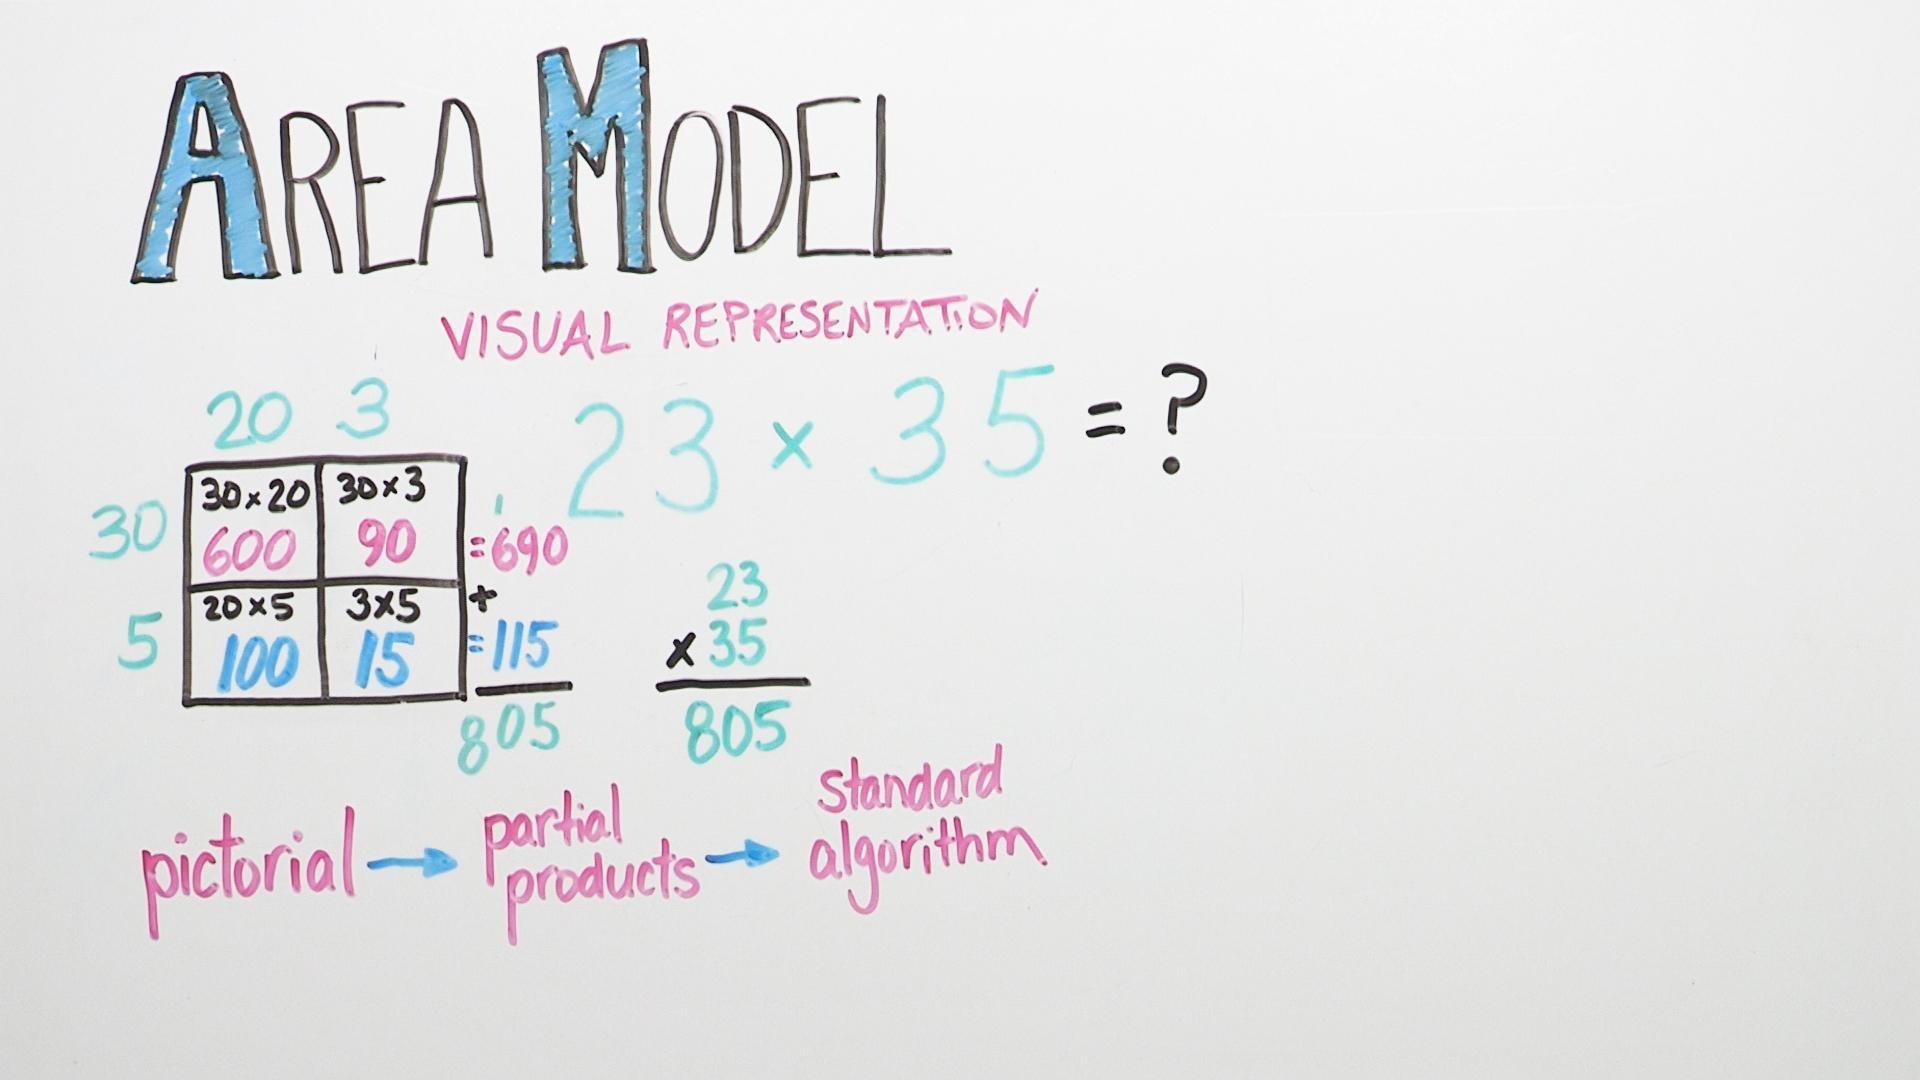 AREA MODEL
VISUAL REPRESENTATION
23 × 35 = ?
20 3
30
30×20 30×3
600 90 =690
1
+
5
20×5 3×5
100 15 =115
805
23
×35
805
pictorial → partial products → standard algorithm